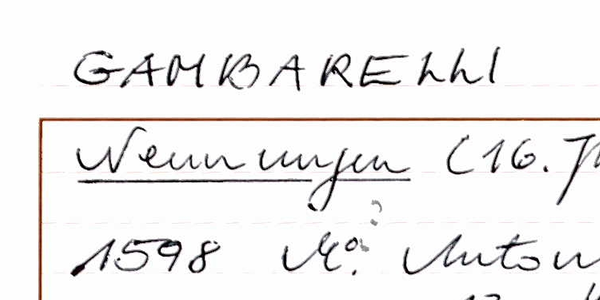 GAMBARELLI
Nennungen (16. Jh
1598 Mo. Anton